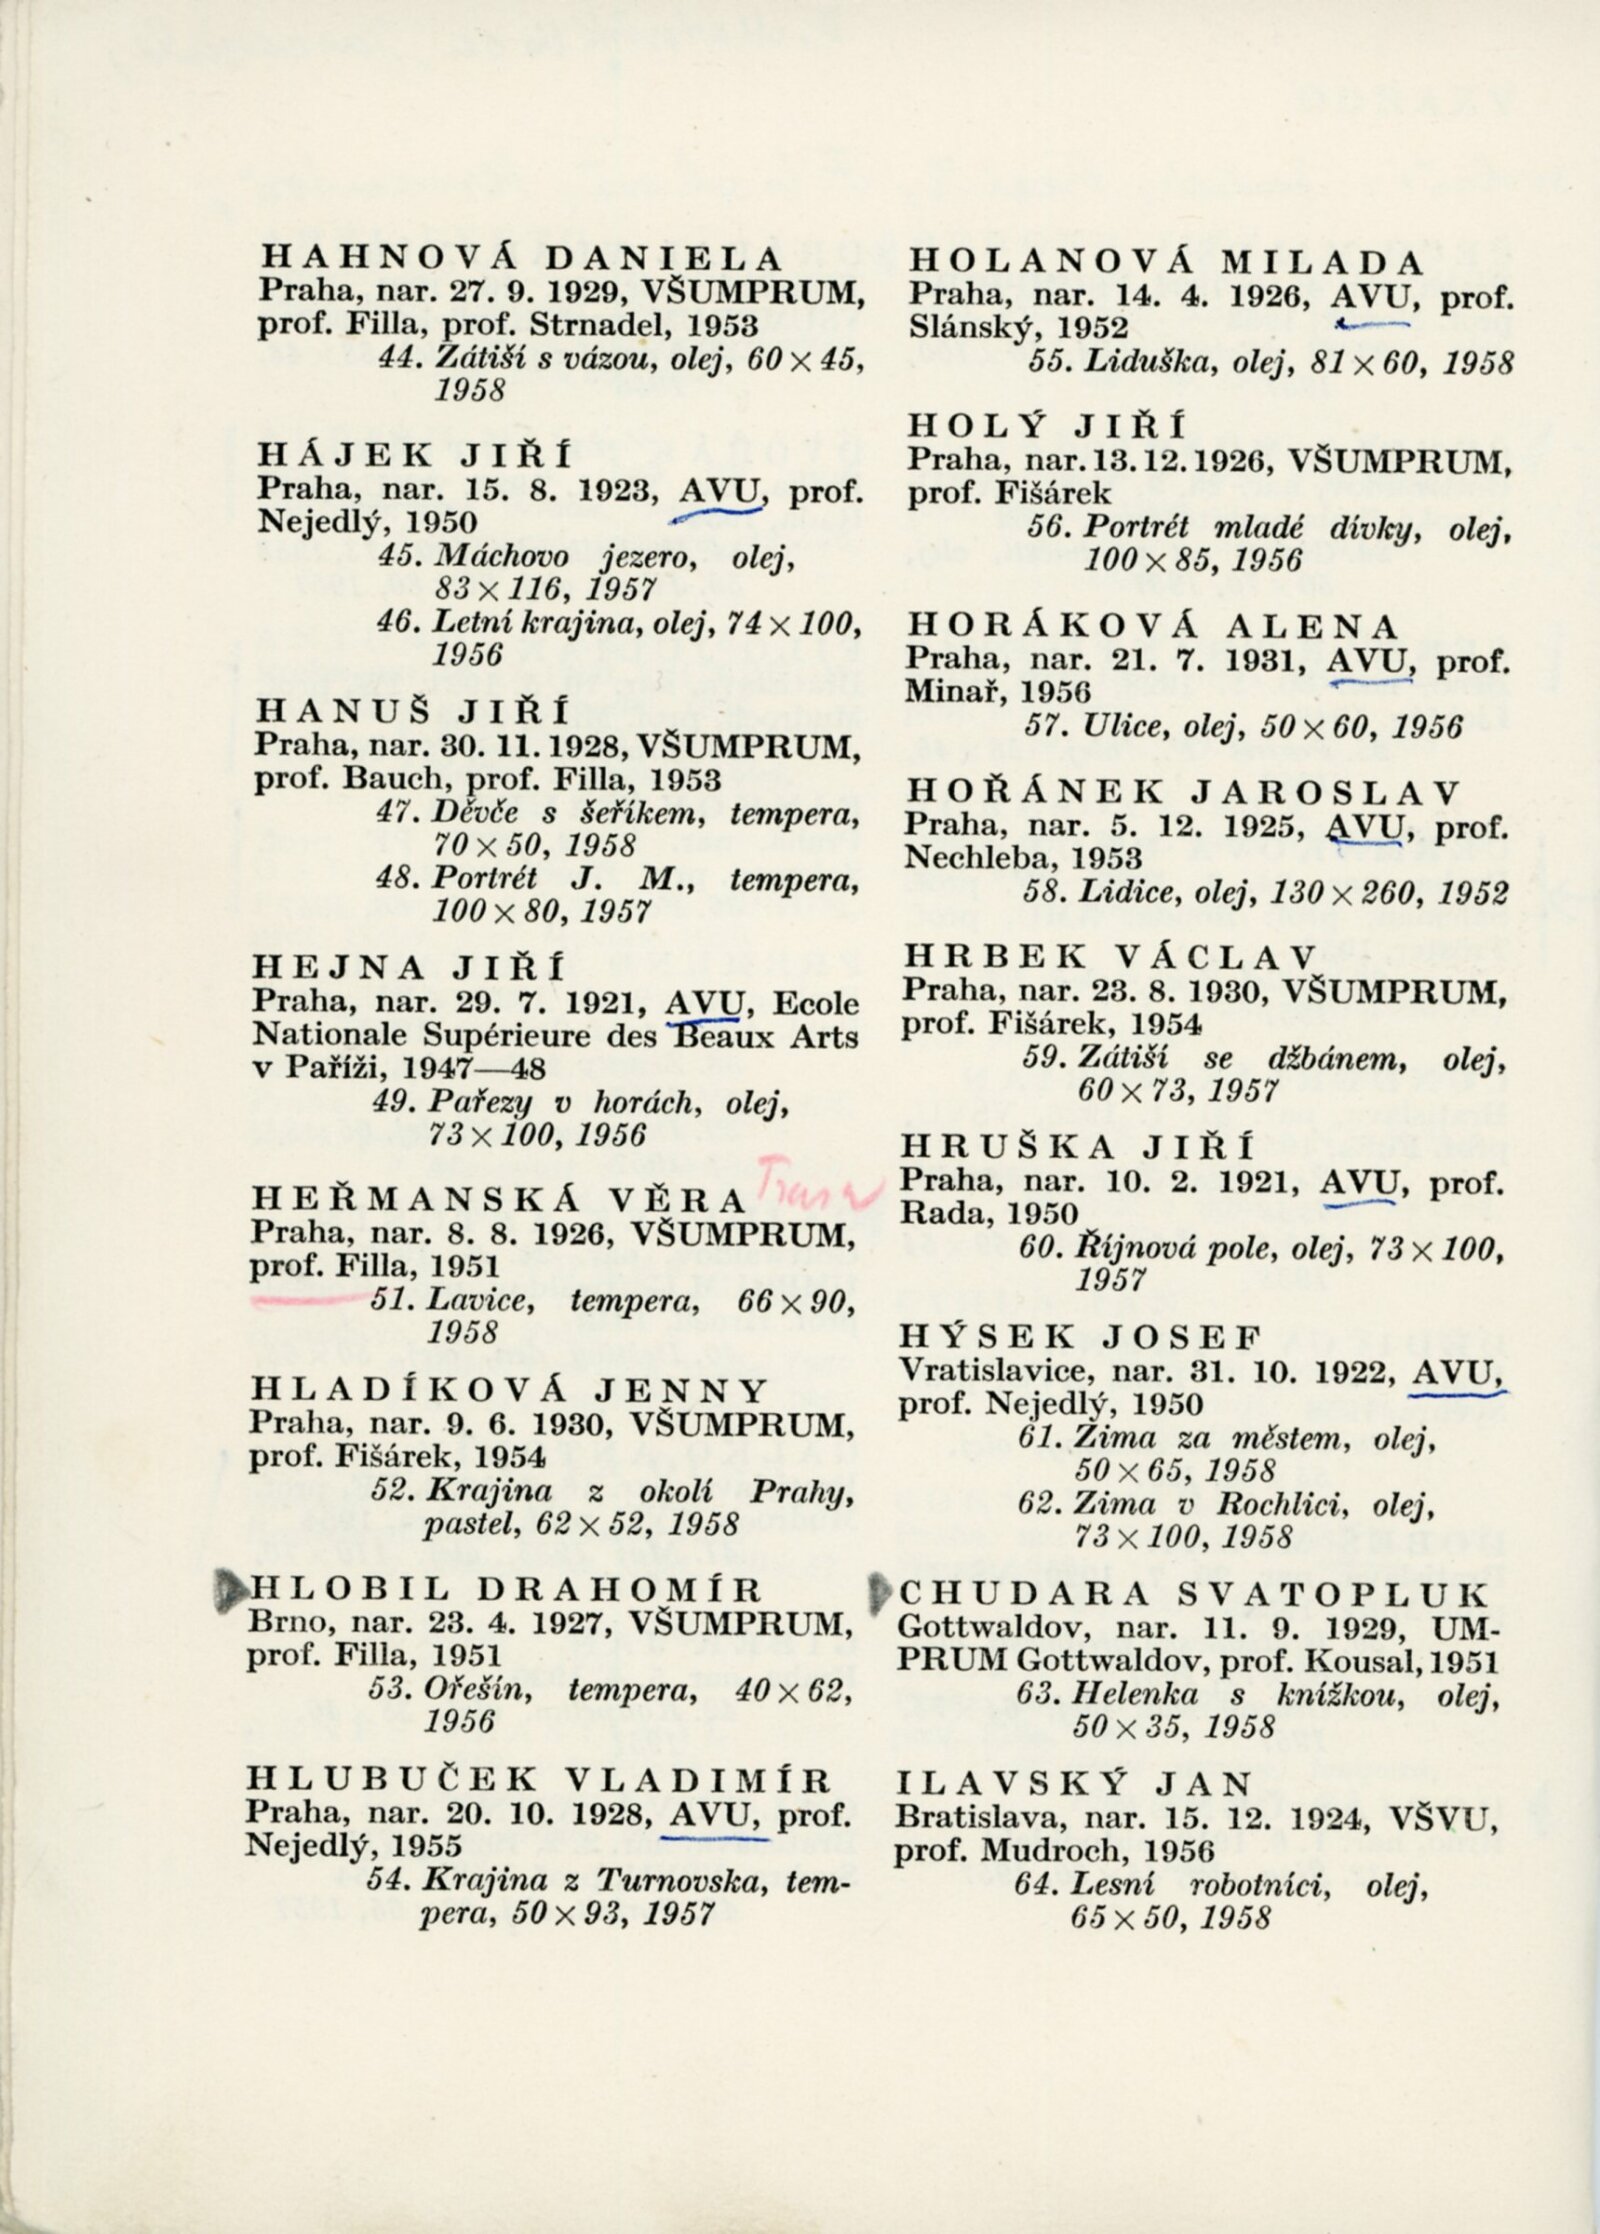 HAHNOVÁ DANIELA
Praha, nar. 27. 9. 1929, VŠUMPRUM,
prof. Filla, prof. Strnadel, 1953
44. Zátiší s vázou, olej, 60 × 45,
1958
HÁJEK JIŘÍ
Praha, nar. 15. 8. 1923, AVU, prof.
Nejedlý, 1950
45. Máchovo jezero, olej,
83 × 116, 1957
46. Letní krajina, olej, 74 × 100,
1956
HANUŠ JIŘÍ
Praha, nar. 30. 11. 1928, VŠUMPRUM,
prof. Bauch, prof. Filla, 1953
47. Děvče s šeříkem, tempera,
70 × 50, 1958
48. Portrét J. M., tempera,
100 × 80, 1957
HEJNA JIŘÍ
Praha, nar. 29. 7. 1921, AVU, Ecole
Nationale Supérieure des Beaux Arts
v Paříži, 1947—48
49. Pařezy v horách, olej,
73 × 100, 1956
HEŘMANSKÁ VĚRA
Praha, nar. 8. 8. 1926, VŠUMPRUM,
prof. Filla, 1951
51. Lavice, tempera, 66 × 90,
1958
HLADÍKOVÁ JENNY
Praha, nar. 9. 6. 1930, VŠUMPRUM,
prof. Fišárek, 1954
52. Krajina z okolí Prahy,
pastel, 62 × 52, 1958
HLOBIL DRAHOMÍR
Brno, nar. 23. 4. 1927, VŠUMPRUM,
prof. Filla, 1951
53. Ořešín, tempera, 40 × 62,
1956
HLUBUČEK VLADIMÍR
Praha, nar. 20. 10. 1928, AVU, prof.
Nejedlý, 1955
54. Krajina z Turnovska, tem-
pera, 50 × 93, 1957
HOLANOVÁ MILADA
Praha, nar. 14. 4. 1926, AVU, prof.
Slánský, 1952
55. Liduška, olej, 81 × 60, 1958
HOLÝ JIŘÍ
Praha, nar. 13. 12. 1926, VŠUMPRUM,
prof. Fišárek
56. Portrét mladé dívky, olej,
100 × 85, 1956
HORÁKOVÁ ALENA
Praha, nar. 21. 7. 1931, AVU, prof.
Minař, 1956
57. Ulice, olej, 50 × 60, 1956
HOŘÁNEK JAROSLAV
Praha, nar. 5. 12. 1925, AVU, prof.
Nechleba, 1953
58. Lidice, olej, 130 × 260, 1952
HRBEK VÁCLAV
Praha, nar. 23. 8. 1930, VŠUMPRUM,
prof. Fišárek, 1954
59. Zátiší se džbánem, olej,
60 × 73, 1957
HRUŠKA JIŘÍ
Praha, nar. 10. 2. 1921, AVU, prof.
Rada, 1950
60. Říjnová pole, olej, 73 × 100,
1957
HÝSEK JOSEF
Vratislavice, nar. 31. 10. 1922, AVU,
prof. Nejedlý, 1950
61. Zima za městem, olej,
50 × 65, 1958
62. Zima v Rochlici, olej,
73 × 100, 1958
CHUDARA SVATOPLUK
Gottwaldov, nar. 11. 9. 1929, UM-
PRUM Gottwaldov, prof. Kousal, 1951
63. Helenka s knížkou, olej,
50 × 35, 1958
ILAVSKÝ JAN
Bratislava, nar. 15. 12. 1924, VŠVU,
prof. Mudroch, 1956
64. Lesní robotníci, olej,
65 × 50, 1958